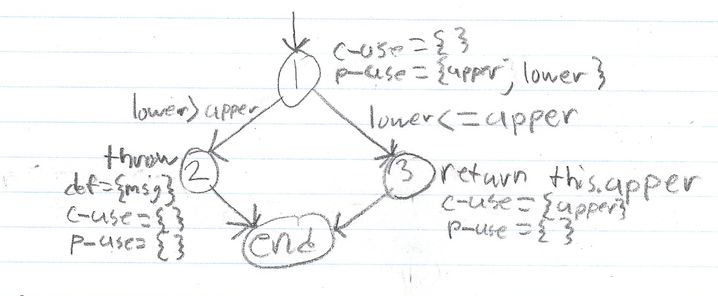 c-use = { }
p-use = {upper, lower}
1
lower > upper
lower <= upper
throw
2
def={msg}
c-use = { }
p-use= { }
3
return this.upper
c-use = {upper}
p-use = { }
end